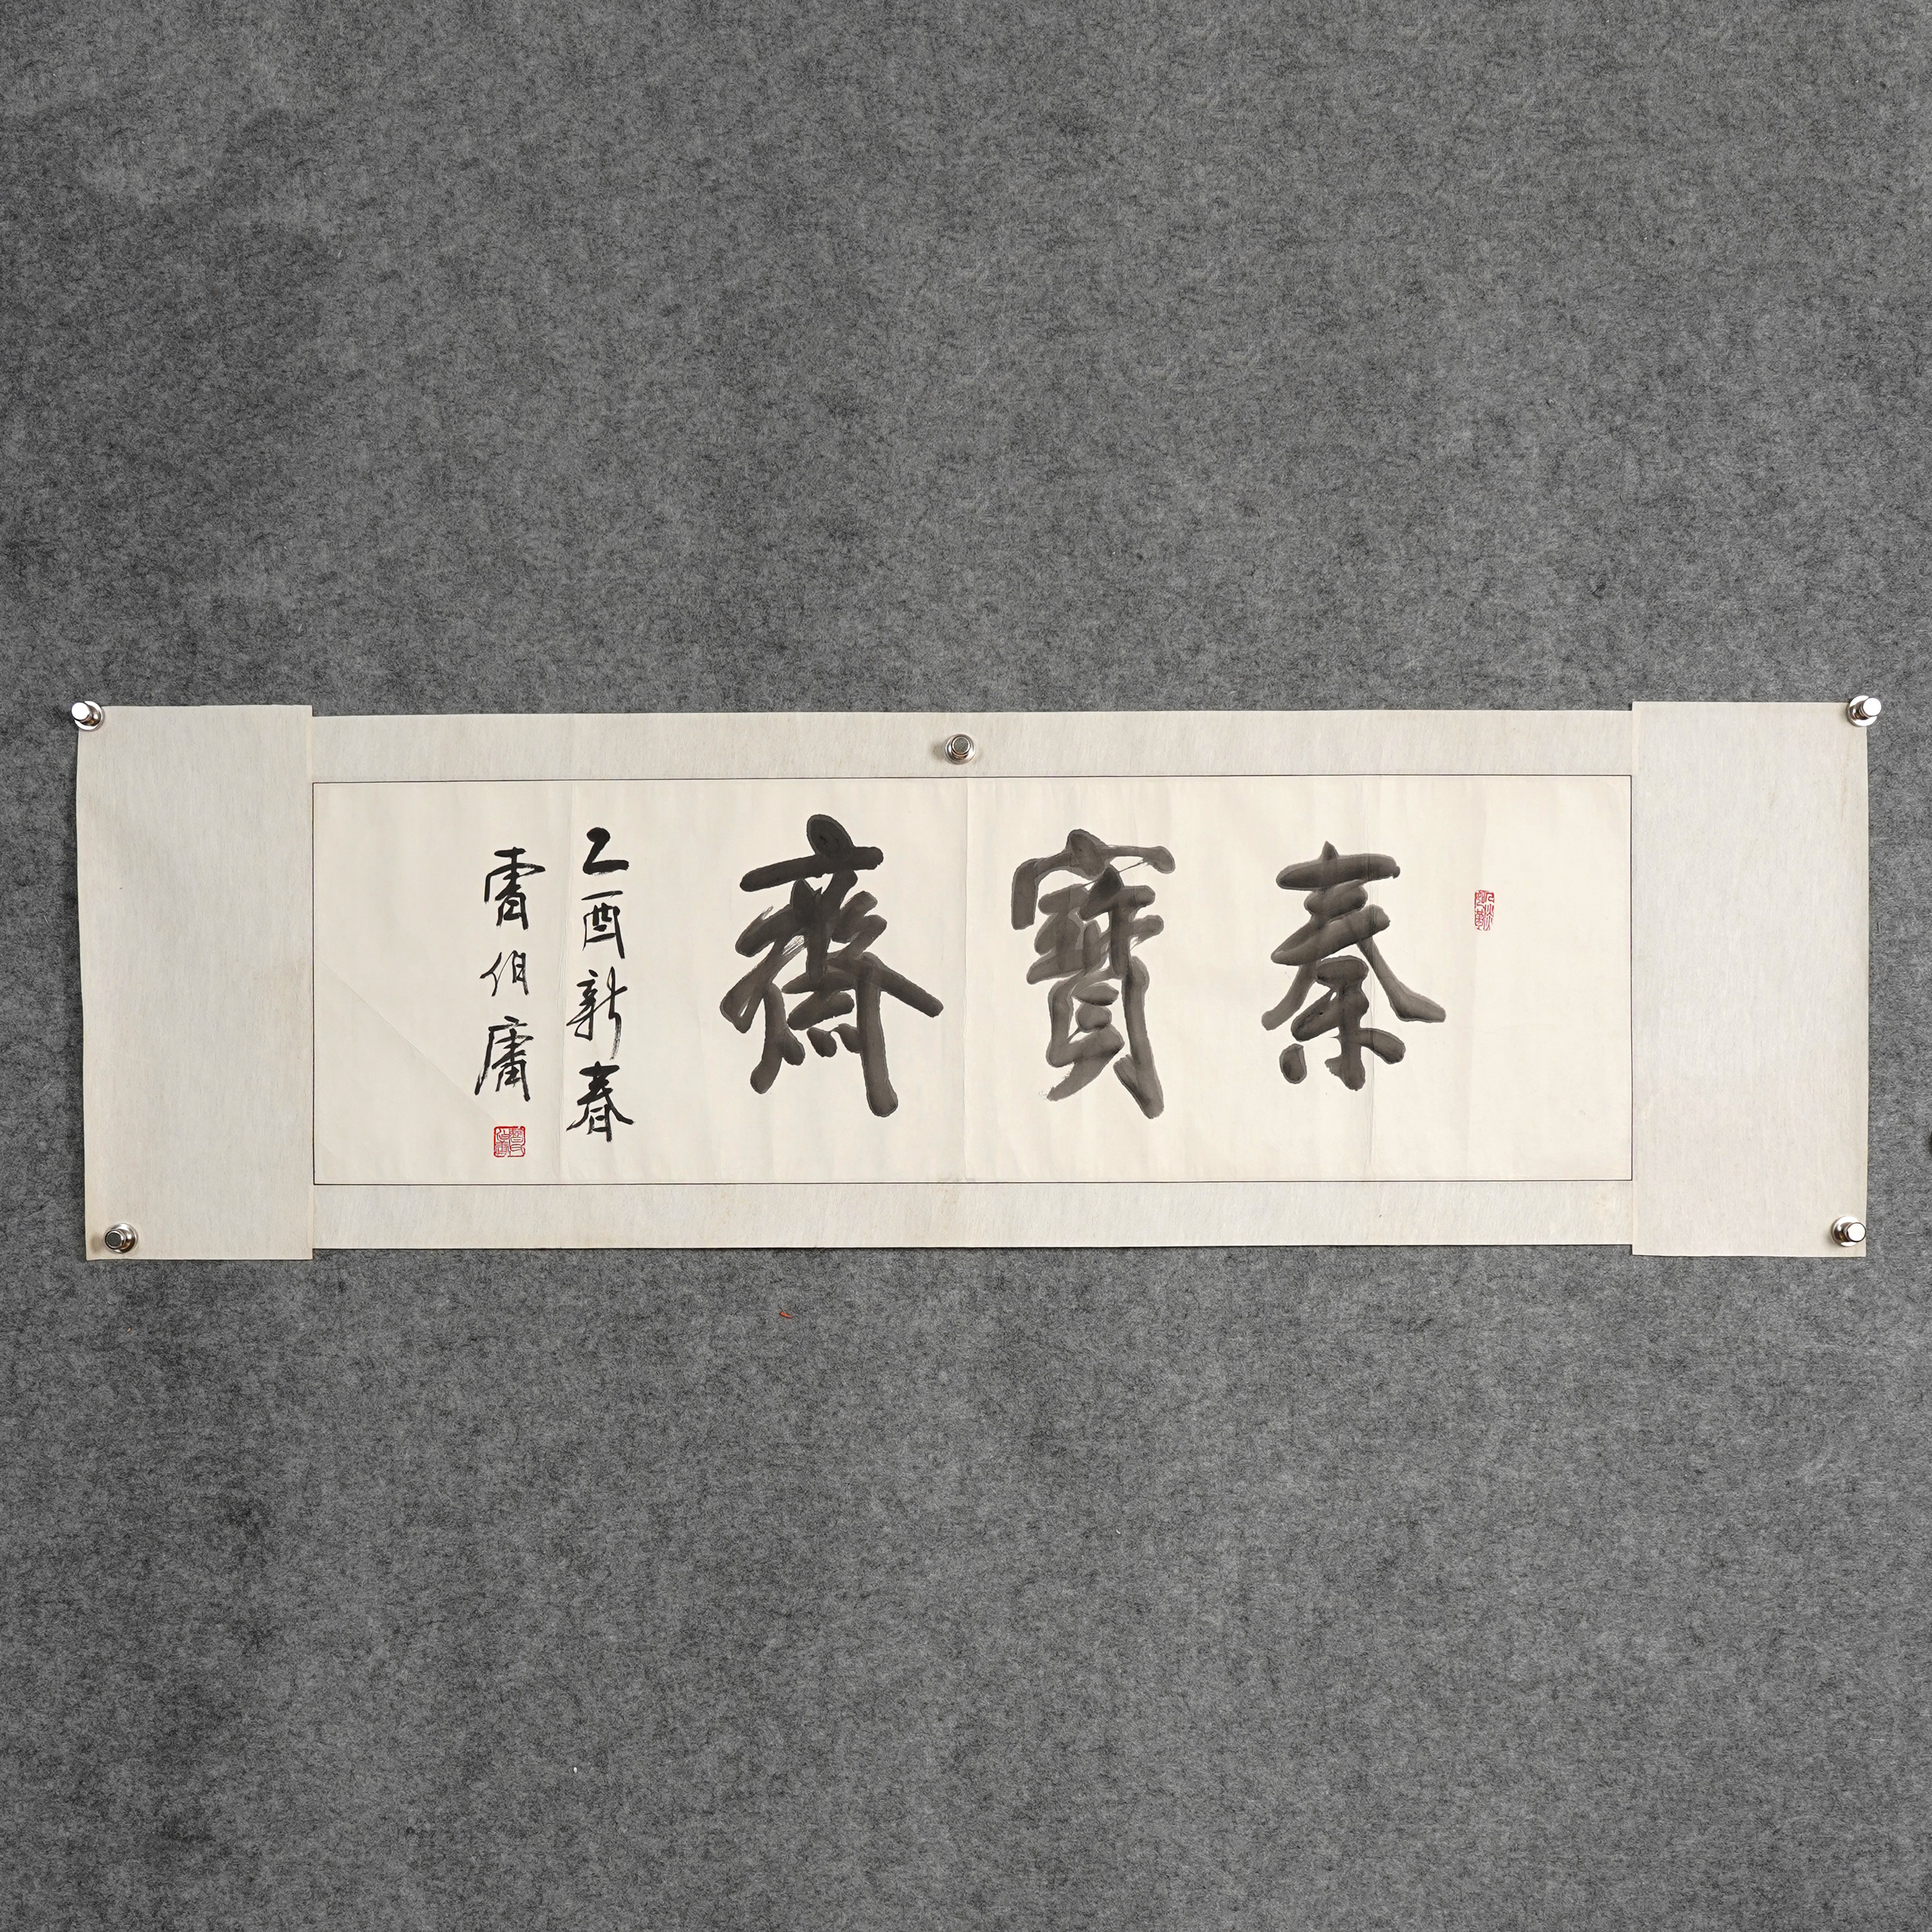 秦寶齋
乙酉新春
雷伯庸